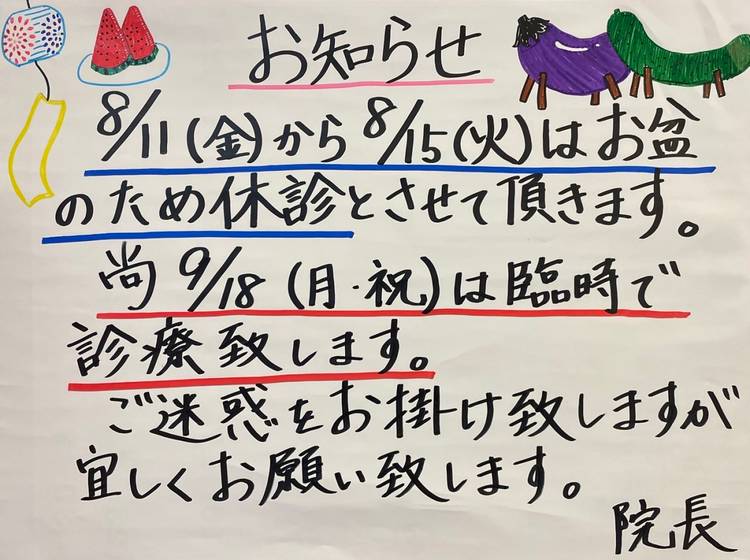 お知らせ
8/11(金)から8/15(火)はお盆
のため休診とさせて頂きます。
尚9/18(月・祝)は臨時で
診療致します。
ご迷惑をお掛け致しますが
宜しくお願い致します。
院長